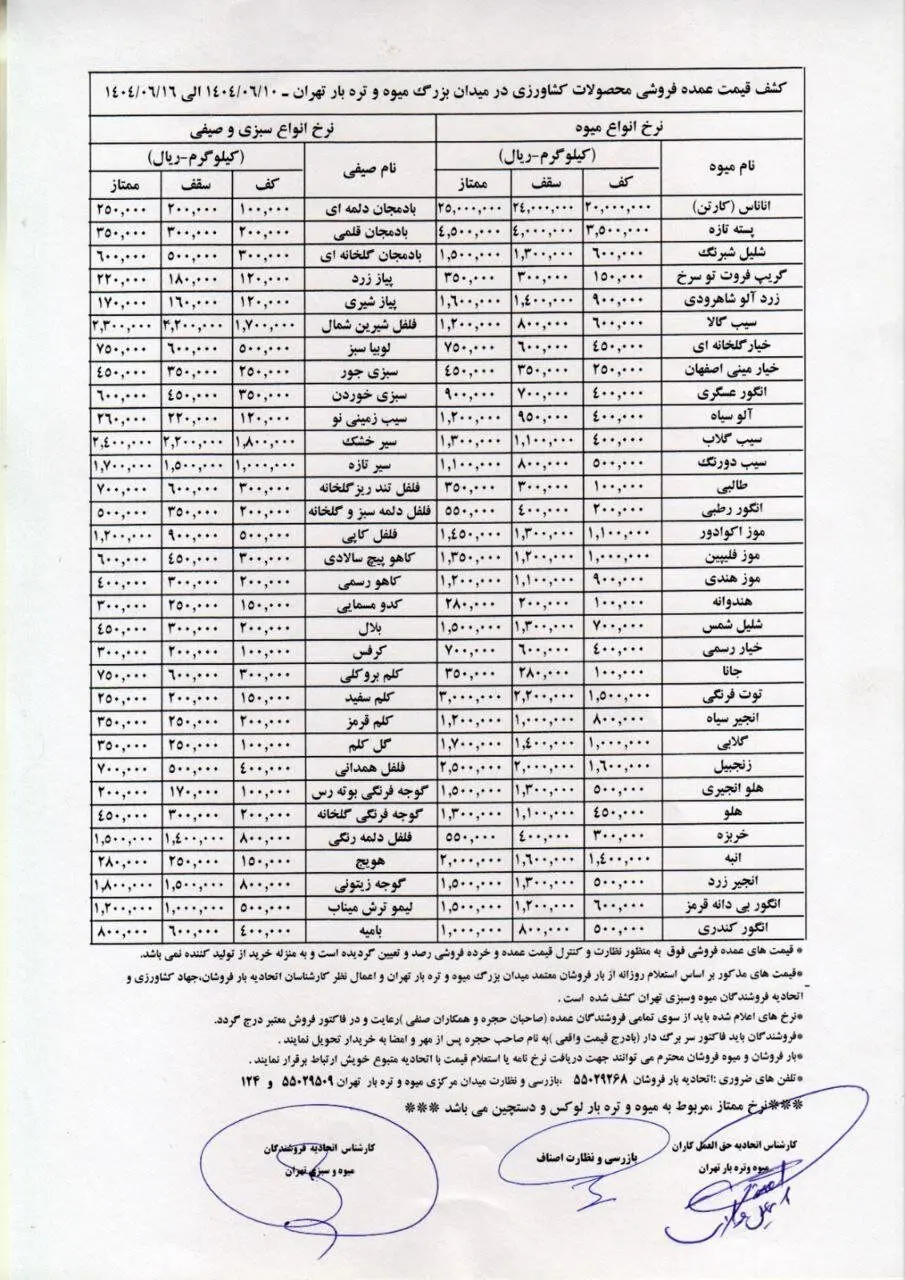 کشف قیمت عمده فروشی محصولات کشاورزی در میدان بزرگ میوه و تره بار تهران ـ ۱۴۰۴/۰۶/۱۰ الی ۱۴۰۴/۰۶/۱۶
نرخ انواع میوه نرخ انواع سبزی و صیفی
نام میوه (کیلوگرم-ریال) نام صیفی (کیلوگرم-ریال)
کف سقف ممتاز کف سقف ممتاز
اناناس (کارتن) ۲۰,۰۰۰,۰۰۰ ۲٤,۰۰۰,۰۰۰ ۲۵,۰۰۰,۰۰۰ بادمجان دلمه ای ۱۰۰,۰۰۰ ۲۰۰,۰۰۰ ۲۵۰,۰۰۰
پسته تازه ۳,۵۰۰,۰۰۰ ٤,۰۰۰,۰۰۰ ٤,۵۰۰,۰۰۰ بادمجان قلمی ۲۰۰,۰۰۰ ۳۰۰,۰۰۰ ۳۵۰,۰۰۰
شلیل شبرنگ ۶۰۰,۰۰۰ ۱,۳۰۰,۰۰۰ ۱,۵۰۰,۰۰۰ بادمجان گلخانه ای ۳۰۰,۰۰۰ ۵۰۰,۰۰۰ ۶۰۰,۰۰۰
گریپ فروت تو سرخ ۱۵۰,۰۰۰ ۳۰۰,۰۰۰ ۳۵۰,۰۰۰ پیاز زرد ۱۲۰,۰۰۰ ۱۸۰,۰۰۰ ۲۲۰,۰۰۰
زرد آلو شاهرودی ۹۰۰,۰۰۰ ۱,٤۰۰,۰۰۰ ۱,۶۰۰,۰۰۰ پیاز شیری ۱۲۰,۰۰۰ ۱۶۰,۰۰۰ ۱۷۰,۰۰۰
سیب گالا ۶۰۰,۰۰۰ ۸۰۰,۰۰۰ ۱,۲۰۰,۰۰۰ فلفل شیرین شمال ۱,۷۰۰,۰۰۰ ۲,۲۰۰,۰۰۰ ۲,۳۰۰,۰۰۰
خیار گلخانه ای ٤۵۰,۰۰۰ ۶۰۰,۰۰۰ ۷۵۰,۰۰۰ لوبیا سبز ۵۰۰,۰۰۰ ۶۰۰,۰۰۰ ۷۵۰,۰۰۰
خیار مینی اصفهان ۲۵۰,۰۰۰ ۳۵۰,۰۰۰ ٤۵۰,۰۰۰ سبزی جور ۲۵۰,۰۰۰ ۳۵۰,۰۰۰ ٤۵۰,۰۰۰
انگور عسگری ٤۰۰,۰۰۰ ۷۰۰,۰۰۰ ۹۰۰,۰۰۰ سبزی خوردن ۳۵۰,۰۰۰ ٤۵۰,۰۰۰ ۶۰۰,۰۰۰
آلو سیاه ٤۰۰,۰۰۰ ۹۵۰,۰۰۰ ۱,۲۰۰,۰۰۰ سیب زمینی نو ۱۲۰,۰۰۰ ۲۲۰,۰۰۰ ۲۶۰,۰۰۰
سیب گلاب ٤۰۰,۰۰۰ ۱,۱۰۰,۰۰۰ ۱,۳۰۰,۰۰۰ سیر خشک ۱,۸۰۰,۰۰۰ ۲,۲۰۰,۰۰۰ ۲,٤۰۰,۰۰۰
سیب دورنگ ۵۰۰,۰۰۰ ۸۰۰,۰۰۰ ۱,۱۰۰,۰۰۰ سیر تازه ۱,۰۰۰,۰۰۰ ۱,۵۰۰,۰۰۰ ۱,۷۰۰,۰۰۰
طالبی ۱۰۰,۰۰۰ ۳۰۰,۰۰۰ ۳۵۰,۰۰۰ فلفل تند ریز گلخانه ۳۰۰,۰۰۰ ۶۰۰,۰۰۰ ۷۰۰,۰۰۰
انگور رطبی ۲۰۰,۰۰۰ ٤۰۰,۰۰۰ ۵۵۰,۰۰۰ فلفل دلمه سبز و گلخانه ۲۰۰,۰۰۰ ۳۵۰,۰۰۰ ۵۰۰,۰۰۰
موز اکوادور ۱,۱۰۰,۰۰۰ ۱,۳۰۰,۰۰۰ ۱,٤۵۰,۰۰۰ فلفل کاپی ۵۰۰,۰۰۰ ۹۰۰,۰۰۰ ۱,۲۰۰,۰۰۰
موز فلیپین ۱,۰۰۰,۰۰۰ ۱,۲۰۰,۰۰۰ ۱,۳۵۰,۰۰۰ کاهو پیچ سالادی ۳۰۰,۰۰۰ ٤۵۰,۰۰۰ ۶۰۰,۰۰۰
موز هندی ۹۰۰,۰۰۰ ۱,۱۰۰,۰۰۰ ۱,۲۰۰,۰۰۰ کاهو رسمی ۲۰۰,۰۰۰ ۳۰۰,۰۰۰ ٤۰۰,۰۰۰
هندوانه ۱۰۰,۰۰۰ ۲۰۰,۰۰۰ ۲۸۰,۰۰۰ کدو مسمایی ۱۵۰,۰۰۰ ۲۵۰,۰۰۰ ۳۰۰,۰۰۰
شلیل شمس ۷۰۰,۰۰۰ ۱,۳۰۰,۰۰۰ ۱,۵۰۰,۰۰۰ بلال ۲۰۰,۰۰۰ ۳۰۰,۰۰۰ ٤۵۰,۰۰۰
خیار رسمی ٤۰۰,۰۰۰ ۶۰۰,۰۰۰ ۷۰۰,۰۰۰ کرفس ۱۰۰,۰۰۰ ۲۰۰,۰۰۰ ۳۰۰,۰۰۰
جانا ۱۰۰,۰۰۰ ۲۸۰,۰۰۰ ۳۵۰,۰۰۰ کلم بروکلی ۳۰۰,۰۰۰ ۶۰۰,۰۰۰ ۷۵۰,۰۰۰
توت فرنگی ۱,۵۰۰,۰۰۰ ۲,۲۰۰,۰۰۰ ۳,۰۰۰,۰۰۰ کلم سفید ۱۵۰,۰۰۰ ۲۰۰,۰۰۰ ۲۵۰,۰۰۰
انجیر سیاه ۸۰۰,۰۰۰ ۱,۰۰۰,۰۰۰ ۱,۲۰۰,۰۰۰ کلم قرمز ۲۰۰,۰۰۰ ۲۵۰,۰۰۰ ۳۵۰,۰۰۰
گلابی ۱,۰۰۰,۰۰۰ ۱,٤۰۰,۰۰۰ ۱,۷۰۰,۰۰۰ گل کلم ۱۰۰,۰۰۰ ۲۵۰,۰۰۰ ۳۵۰,۰۰۰
زنجبیل ۱,۶۰۰,۰۰۰ ۲,۰۰۰,۰۰۰ ۲,۵۰۰,۰۰۰ فلفل همدانی ٤۰۰,۰۰۰ ۵۰۰,۰۰۰ ۷۰۰,۰۰۰
هلو انجیری ۵۰۰,۰۰۰ ۱,۳۰۰,۰۰۰ ۱,۵۰۰,۰۰۰ گوجه فرنگی بوته رس ۱۰۰,۰۰۰ ۱۷۰,۰۰۰ ۲۰۰,۰۰۰
هلو ٤۵۰,۰۰۰ ۱,۱۰۰,۰۰۰ ۱,۳۰۰,۰۰۰ گوجه فرنگی گلخانه ۲۰۰,۰۰۰ ۳۰۰,۰۰۰ ٤۵۰,۰۰۰
خربزه ۳۰۰,۰۰۰ ٤۰۰,۰۰۰ ۵۵۰,۰۰۰ فلفل دلمه رنگی ۸۰۰,۰۰۰ ۱,٤۰۰,۰۰۰ ۱,۵۰۰,۰۰۰
انبه ۱,٤۰۰,۰۰۰ ۱,۶۰۰,۰۰۰ ۲,۰۰۰,۰۰۰ هویج ۱۵۰,۰۰۰ ۲۵۰,۰۰۰ ۲۸۰,۰۰۰
انجیر زرد ۵۰۰,۰۰۰ ۱,۳۰۰,۰۰۰ ۱,۵۰۰,۰۰۰ گوجه زیتونی ۸۰۰,۰۰۰ ۱,۵۰۰,۰۰۰ ۱,۸۰۰,۰۰۰
انگور بی دانه قرمز ۶۰۰,۰۰۰ ۱,۲۰۰,۰۰۰ ۱,۵۰۰,۰۰۰ لیمو ترش میناب ۵۰۰,۰۰۰ ۱,۰۰۰,۰۰۰ ۱,۲۰۰,۰۰۰
انگور کندری ۵۰۰,۰۰۰ ۸۰۰,۰۰۰ ۱,۰۰۰,۰۰۰ بامیه ٤۰۰,۰۰۰ ۶۰۰,۰۰۰ ۸۰۰,۰۰۰
* قیمت های عمده فروشی فوق به منظور نظارت و کنترل قیمت عمده و خرده فروشی رصد و تعیین گردیده است و به منزله خرید از تولید کننده نمی باشد.
*قیمت های مذکور بر اساس استعلام روزانه از بار فروشان معتمد میدان بزرگ میوه و تره بار تهران و اعمال نظر کارشناسان اتحادیه بار فروشان،جهاد کشاورزی و
اتحادیه فروشندگان میوه وسبزی تهران کشف شده است .
*نرخ های اعلام شده باید از سوی تمامی فروشندگان عمده (صاحبان حجره و همکاران صنفی )رعایت و در فاکتور فروش معتبر درج گردد.
*فروشندگان باید فاکتور سر برگ دار (بادرج قیمت واقعی )به نام صاحب حجره پس از مهر و امضا به خریدار تحویل نمایند .
*بار فروشان و میوه فروشان محترم می توانند جهت دریافت نرخ نامه یا استعلام قیمت با اتحادیه متبوع خویش ارتباط برقرار نمایند .
*تلفن های ضروری :اتحادیه بار فروشان ۵۵۰۲۹۲۶۸ ،بازرسی و نظارت میدان مرکزی میوه و تره بار تهران ۵۵۰۲۹۵۰۹ و ۱۲۴
***نرخ ممتاز ،مربوط به میوه و تره بار لوکس و دستچین می باشد ***
کارشناس اتحادیه حق العمل کاران
میوه وتره بار تهران
بازرسی و نظارت اصناف
کارشناس اتحادیه فروشندگان
میوه و سبزی تهران